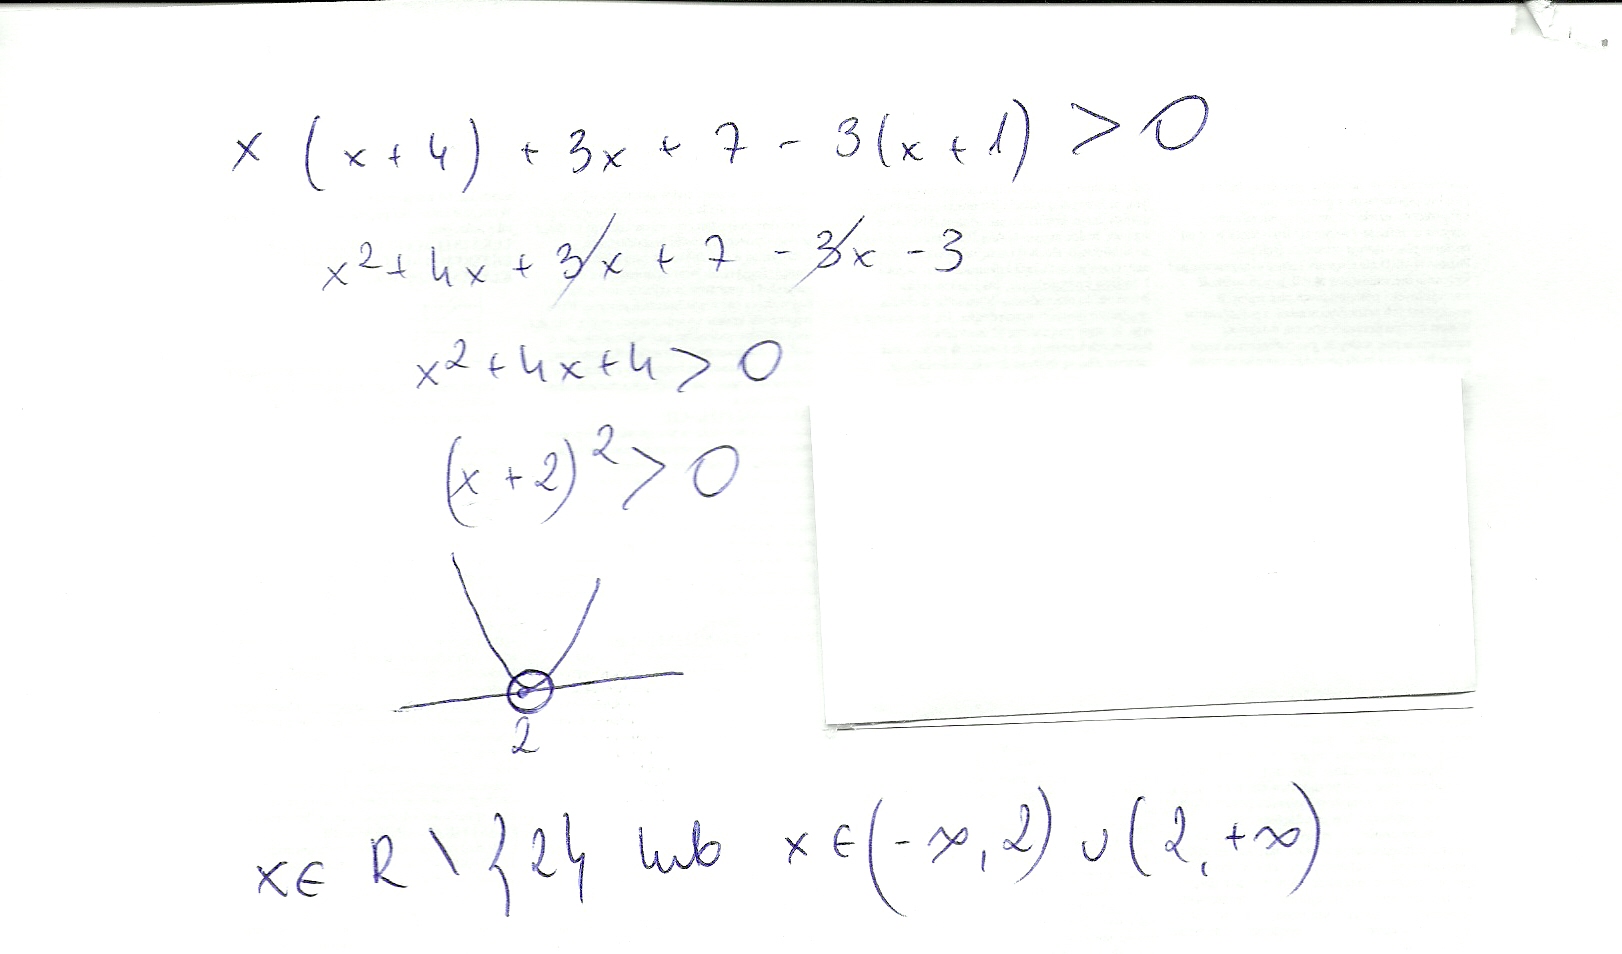 x (x + 4) + 3x + 7 - 3(x + 1) > 0
x² + 4x + 3x + 7 - 3x - 3
x² + 4x + 4 > 0
(x + 2)² > 0
2
x ∈ R \ {2} lub x ∈ (-∞, 2) ∪ (2, +∞)